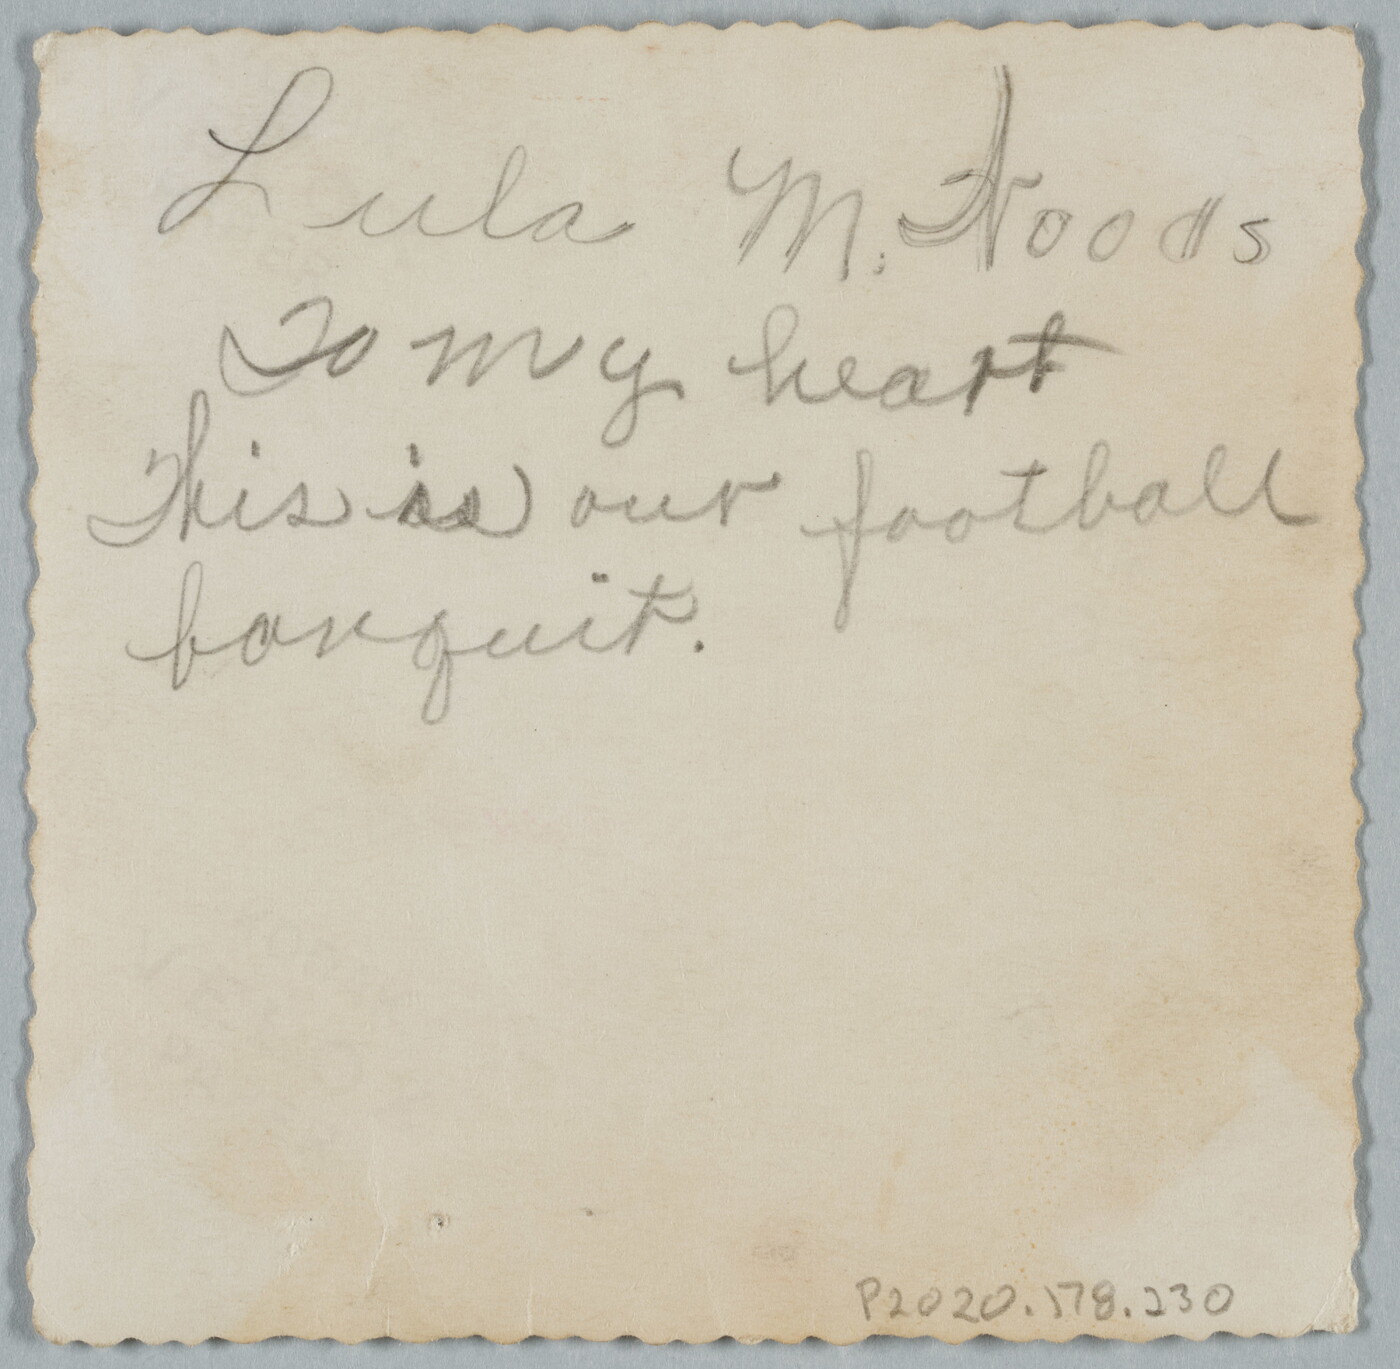 Lula M. Woods
To my heart
This is our football
banquit.
P2020.178.230